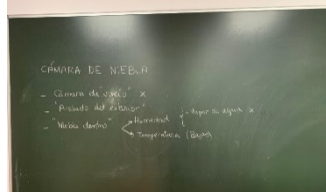 CÁMARA DE NIEBLA
- Cámara de "vacío" x
- "Aislado del exterior"
- "Niebla dentro" → Humedad } - Vapor de agua x
→ Temperatura (Baja)